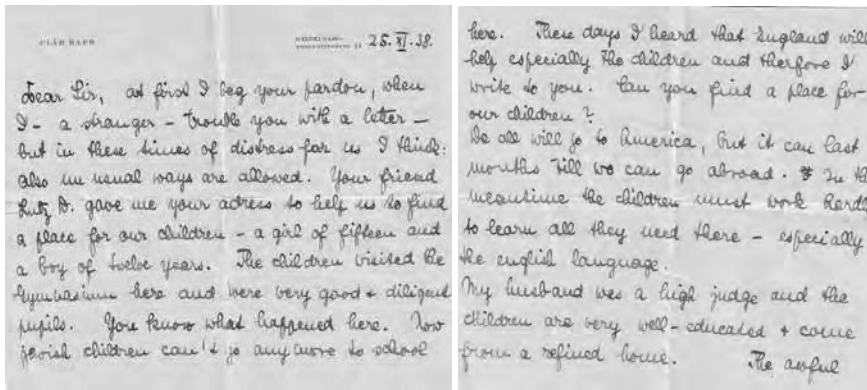 25.XI.38.
Dear Sir, at first I beg your pardon, when
I - a stranger - trouble you with a letter -
but in these times of distress for us I think:
also un usual ways are allowed. Your friend
Lutz D. gave me your adress to help us to find
a place for our children - a girl of fifteen and
a boy of twelve years. The children visited the
Gymnasium here and were very good + diligent
pupils. You know what happened here. Now
jewish children can't go anymore to school
here. These days I heard that England will
help especially the children and therfore I
write to you. Can you find a place for
our children?
We all will go to America, but it can last
months till we can go abroad. In the
meantime the children must work hard
to learn all they need there - especially
the english language.
My husband was a high judge and the
children are very well-educated + come
from a refined home. The awful